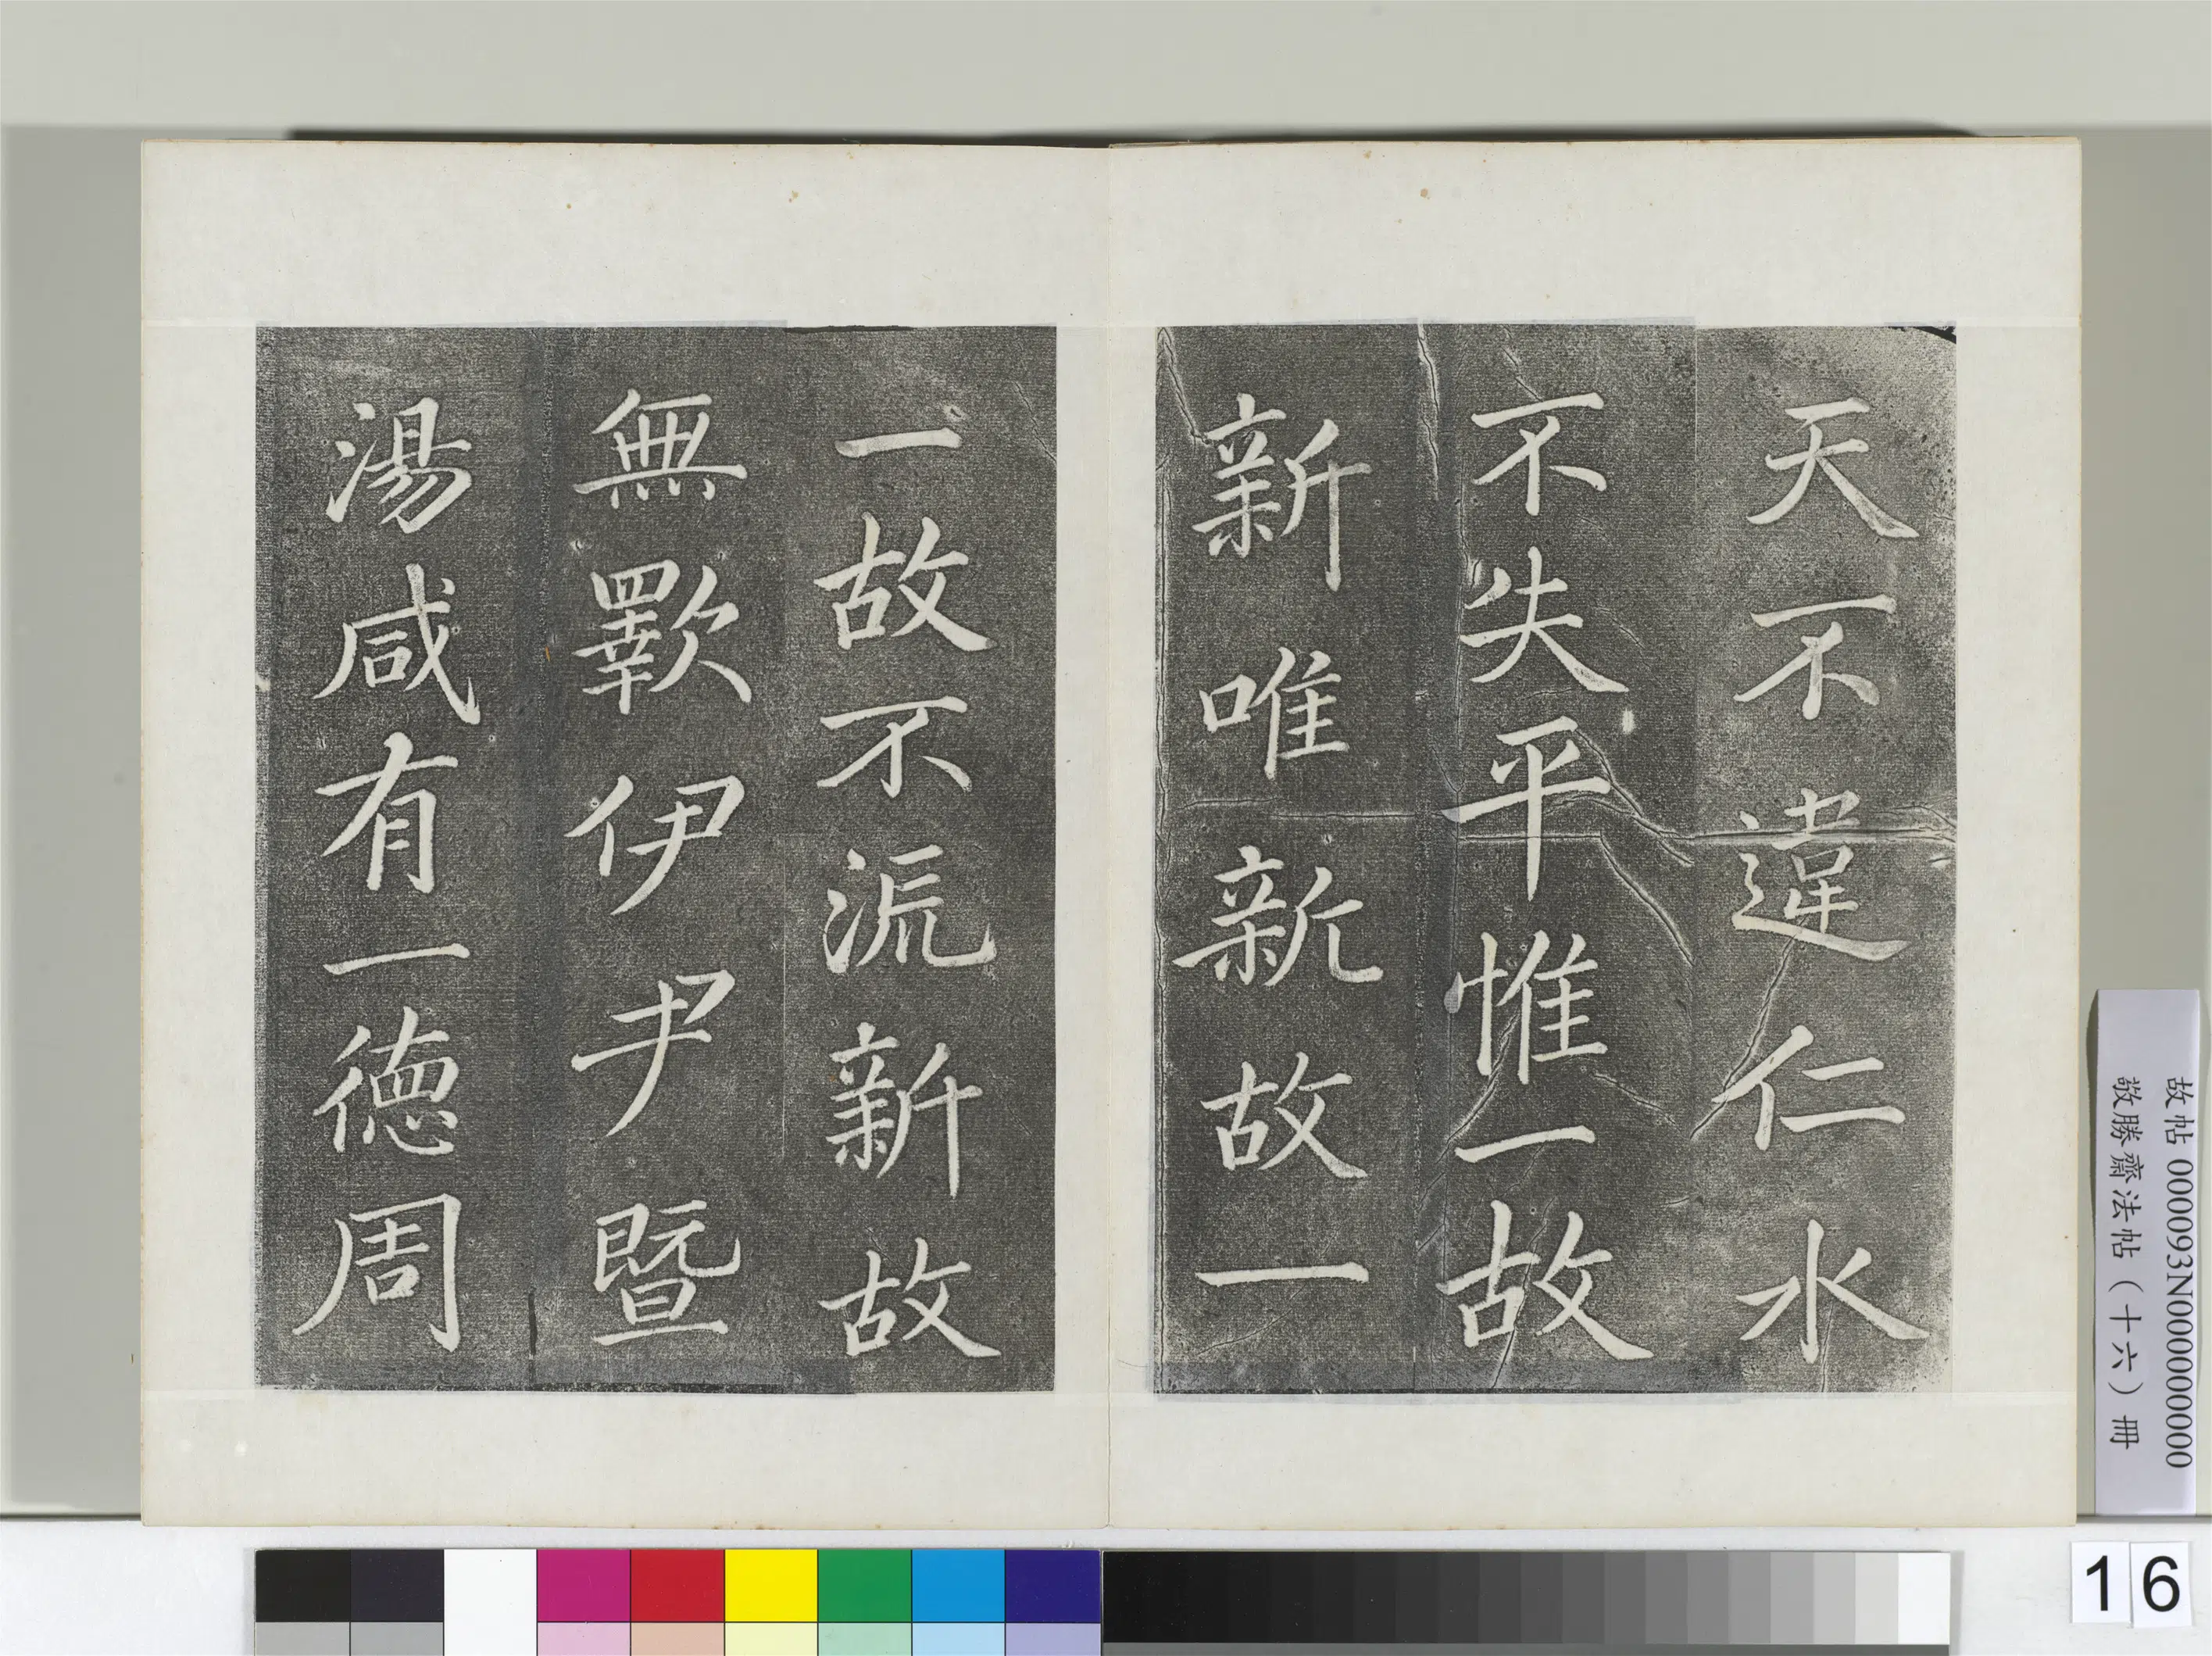 天不違仁水
不失平惟一故
新唯新故一
一故不流新故
無歝伊尹暨
湯咸有一徳周
故帖 000093N000000000
敬勝齋法帖（十六）冊
16